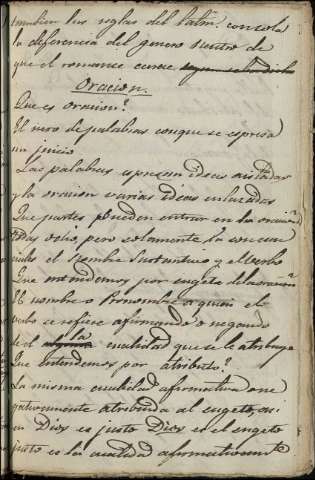 tambien las reglas del latin. con sola
la diferencia del genero neutro de
que el romance carece
Oracion.
Que es oracion?
El nexo de palabras conque se espresa
un juicio
Las palabras espresan ideas aisladas
y la oracion varias ideas enlazadas
Que partes pueden entrar en la oracion
todas ocho, pero solamente son
el Nombre Sustantivo y el verbo
Que entendemos por sugeto de la oracion
El nombre o Pronombre a quien el
verbo se refiere afirmando o negando
de el la cualidad que se le atribuye
Que entendemos por atributo?
La misma cualidad afirmativa o ne
gativamente atribuida al sugeto, asi
en Dios es justo Dios es el sugeto
justo es la cualidad afirmativamte